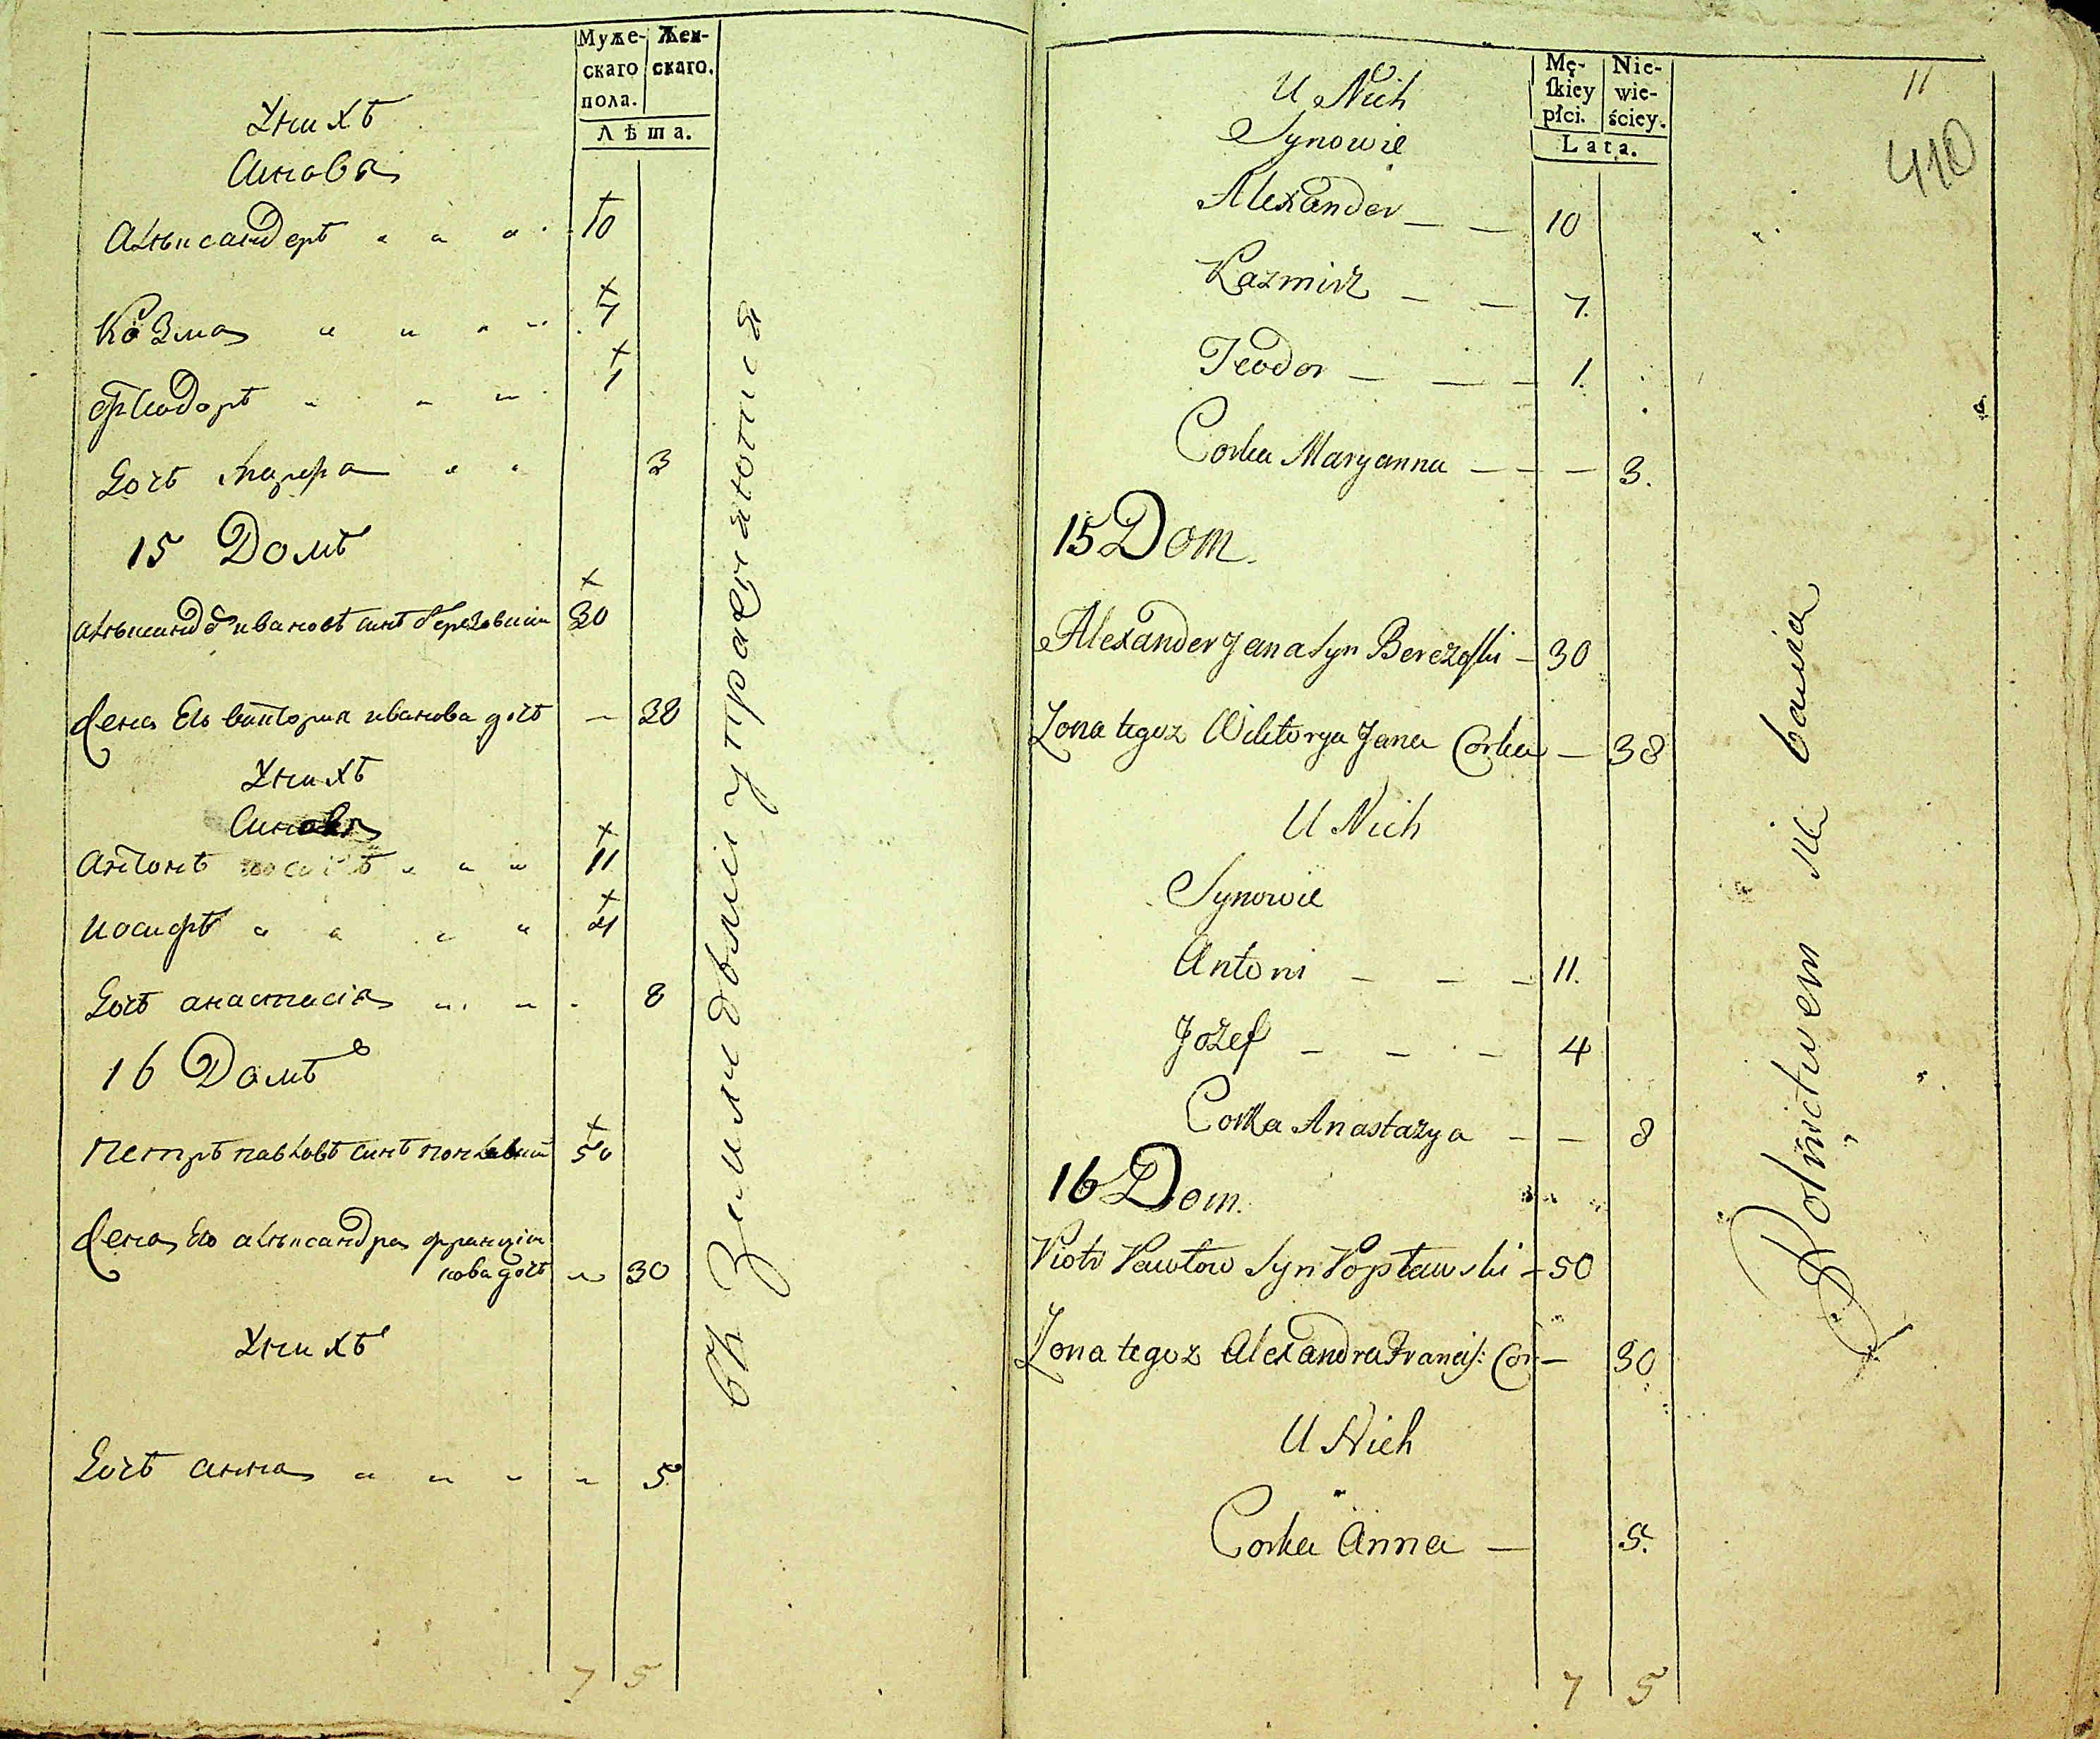 Муже- Жен-
скаго скаго.
пола.
Лѣта.
У нихъ
Синовя
Алѣксандеръ " " " 10
Козма " " " 7
Ѳеодоръ " " " 1
Дочъ 3
15 Домъ
Алѣксандръ Ивановъ синъ Березовский 30
Жена Его Виктория Иванова дочъ — 38
У нихъ
Синовя
Антонъ " " " 11
Иосифъ " " " " 4
Дочъ Анастасія " " - 8
16 Домъ
Петръ Павловъ синъ 50
Жена Его Алѣксандра Францiш
кова дочъ " 30
У нихъ
Дочъ Анна " " " " 5.
7 5
въ Земли
Mę- Nie-
ſkiey wie-
płci. ściey.
Lata.
11
410
U Nich
Synowie
Alexander — — 10
Kazmirz — — 7.
Teodor — — — 1.
Corka Maryanna — — — 3.
15 Dom.
Alexander Jana Syn Berezoſki — 30
Zona tegoz Wiktorya Jana Corka — 38
U Nich
Synowie
Antoni — — — 11.
Jozef — — — 4
Corka Anastazya — — 8
16 Dom.
Piotr Pawłow Syn Popławski — 50
Zona tegoz Alexandra Franciſ: Cor — 30
U Nich
Corka Anna — 5.
7 5
Rolnictwem się bawia